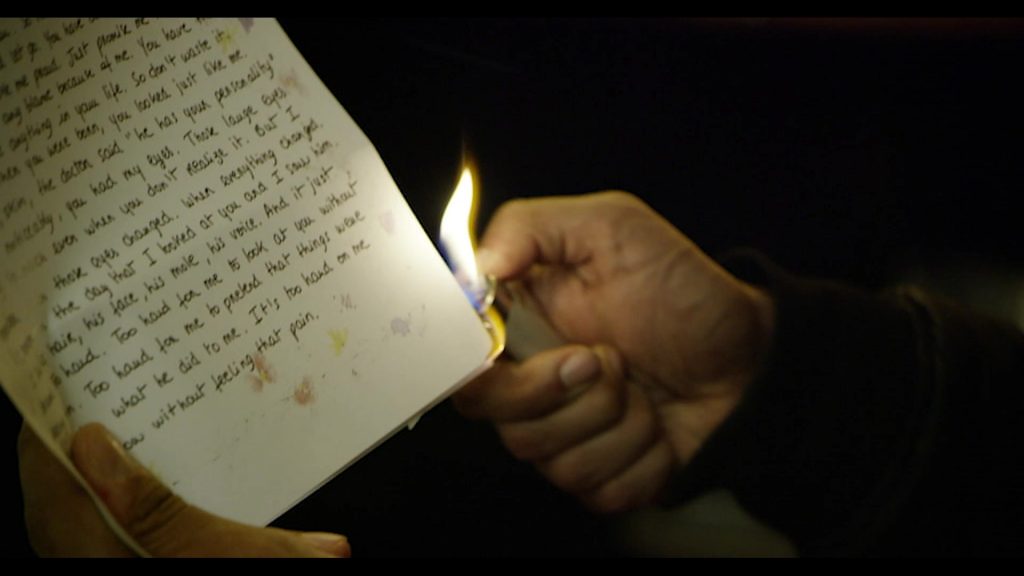 go. You have
me proud. Just promise me
any shame because of me. You have
anything in your life. So don't waste it.
when you were born, you looked just like me
skin, the doctor said "he has your personality"
noticeably, you had my eyes. Those large eyes
even when you don't realize it. But I
those eyes changed. When everything changed.
the day that I looked at you and I saw him.
hair, his face, his mole, his voice. And it just
hard. Too hard for me to look at you without
Too hard for me to pretend that things were
what he did to me. It's too hard on me
now without feeling that pain.